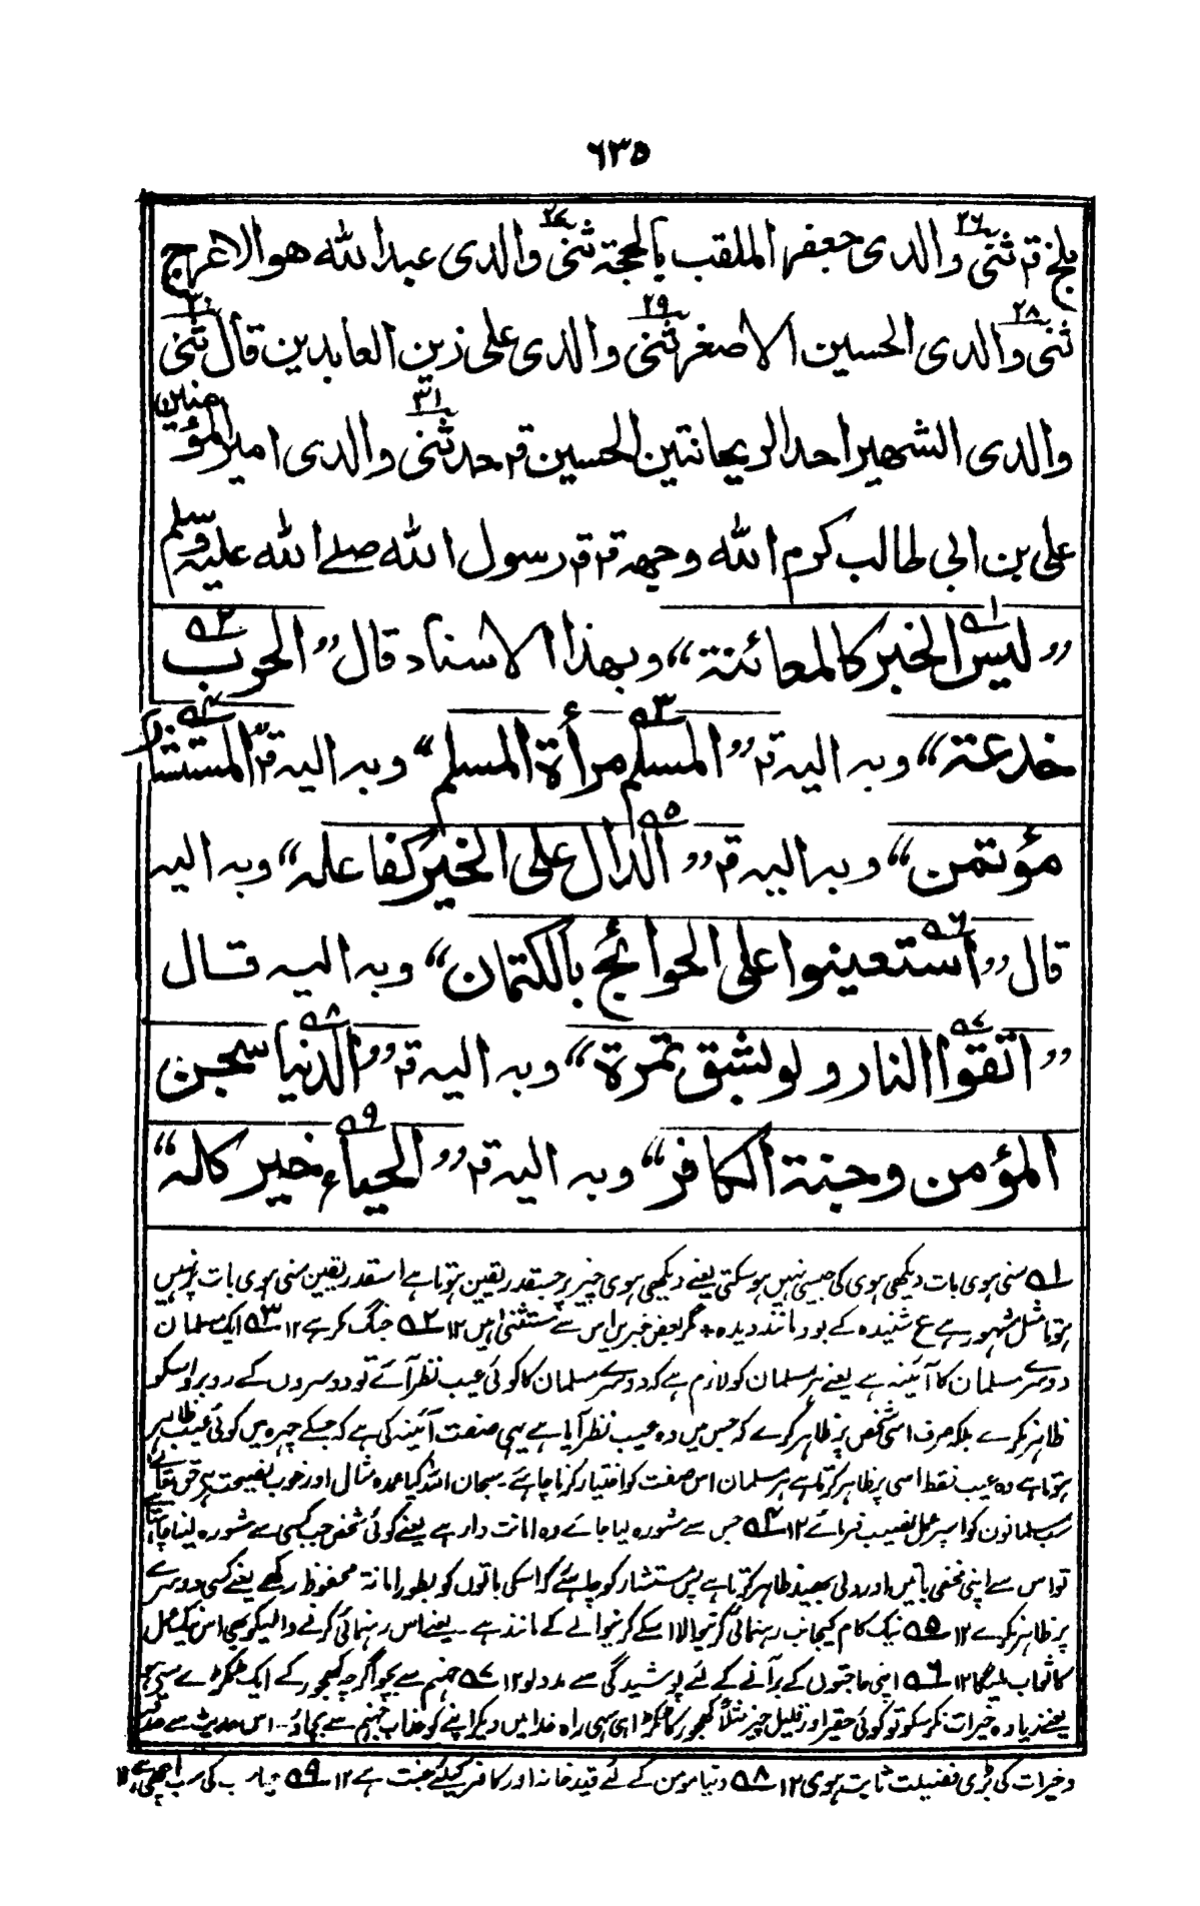 ٦٣٥
بلخ قہ ثنی والدی جعفر الملقب بالحجۃ ثنی والدی عبد اللہ ھو الاعرج
ثنی والدی الحسین الاصغر ثنی والدی علی زین العابدین قال ثنی
والدی الشھیر احد الریحانتین الحسین قہ حدثنی والدی امیر المؤمنین
علی بن ابی طالب کرم اللہ وجھہ قہ قہ رسول اللہ صلے اللہ علیہ وسلم
”لیس الخبر کالمعائنۃ“ وبھذا الاسناد قال ”الحرب
خدعۃ“ وبہ الیہ قہ ”المسلم مرأۃ المسلم“ وبہ الیہ قہ ”المستشار
مؤتمن“ وبہ الیہ قہ ”الدال علی الخیر کفاعلہ“ وبہ الیہ
قال ”استعینوا علی الحوائج بالکتمان“ وبہ الیہ قال
”اتقوا النار ولو بشق تمرۃ“ وبہ الیہ قہ ”الدنیا سجن
المؤمن وجنۃ الکافر“ وبہ الیہ قہ ”الحیاء خیر کلہ“
١ سنی ہوی بات دیکھی ہوی کی جیسی نہیں ہو سکتی یعنے دیکھی ہوی چیز پر جسقدر یقین ہوتا ہے اسقدر یقین سنی ہوی بات پر نہیں
ہوتا مثل مشہور ہے ع شنیدہ کے بود مانند دیدہ + مگر بعض خبریں اس سے مستثنیٰ ہیں ١٢ ٢ جنگ مکر ہے ١٢ ٣ ایک مسلمان
دوسرے مسلمان کا آئینہ ہے یعنے ہر مسلمان کو لازم ہے کہ دوسرے مسلمان کا کوئی عیب نظر آئے تو دوسروں کے روبرو اسکو
ظاہر نکرے بلکہ صرف اسی شخص پر ظاہر کرے کہ جس میں وہ عیب نظر آیا ہے یہی صنعت آئینہ کی ہے کہ جسکے چہرہ میں کوئی عیب ظاہر
ہوتا ہے وہ عیب فقط اسی پر ظاہر کرتا ہے ہر مسلمان اس صفت کو اختیار کرنا چاہئے۔ سبحان اللہ کیا عمدہ مثال اور خوب نصیحت ہے حق تعالےٰ
سب مسلمانوں کو اسپر عمل نصیب فرمائے ١٢ ٤ جس سے مشورہ لیا جائے وہ امانت دار ہے یعنے کوئی شخص جب کسی سے مشورہ لینا چاہتا ہے
تو اس سے اپنی مخفی باتیں اور دلی بھید ظاہر کرتا ہے پس مستشار کو چاہئے کہ اسکی باتوں کو بطور امانۃ محفوظ رکھے یعنے کسی دوسرے
پر ظاہر نکرے ١٢ ٥ نیک کام کیجانب رہنمائی کرنیوالا اسکے کرنیوالے کے مانند ہے۔ یعنے اس رہنمائی کرنے والیکو بھی اس نیک عمل
کا ثواب ملیگا ١٢ ٦ اپنی حاجتوں کے بر آنے کے لئے پوشیدگی سے مدد لو ١٢ ٧ جہنم سے بچو اگرچہ کھجور کے ایک ٹکڑے سے ہی ہو
یعنے زیادہ خیرات نکر سکو تو کوئی حقیر اور قلیل چیز مثلاً کھجور کا ٹکڑا ہی سہی راہ خدا میں دیکر اپنے کو عذاب جہنم سے بچاؤ۔ اس حدیث سے صدقہ
وخیرات کی بڑی فضیلت ثابت ہوی ١٢ ٨ دنیا مومن کے لئے قید خانہ اور کافر کیلئے جنت ہے ١٢ ٩ حیا سب کی سب اچھی ہے ١٢